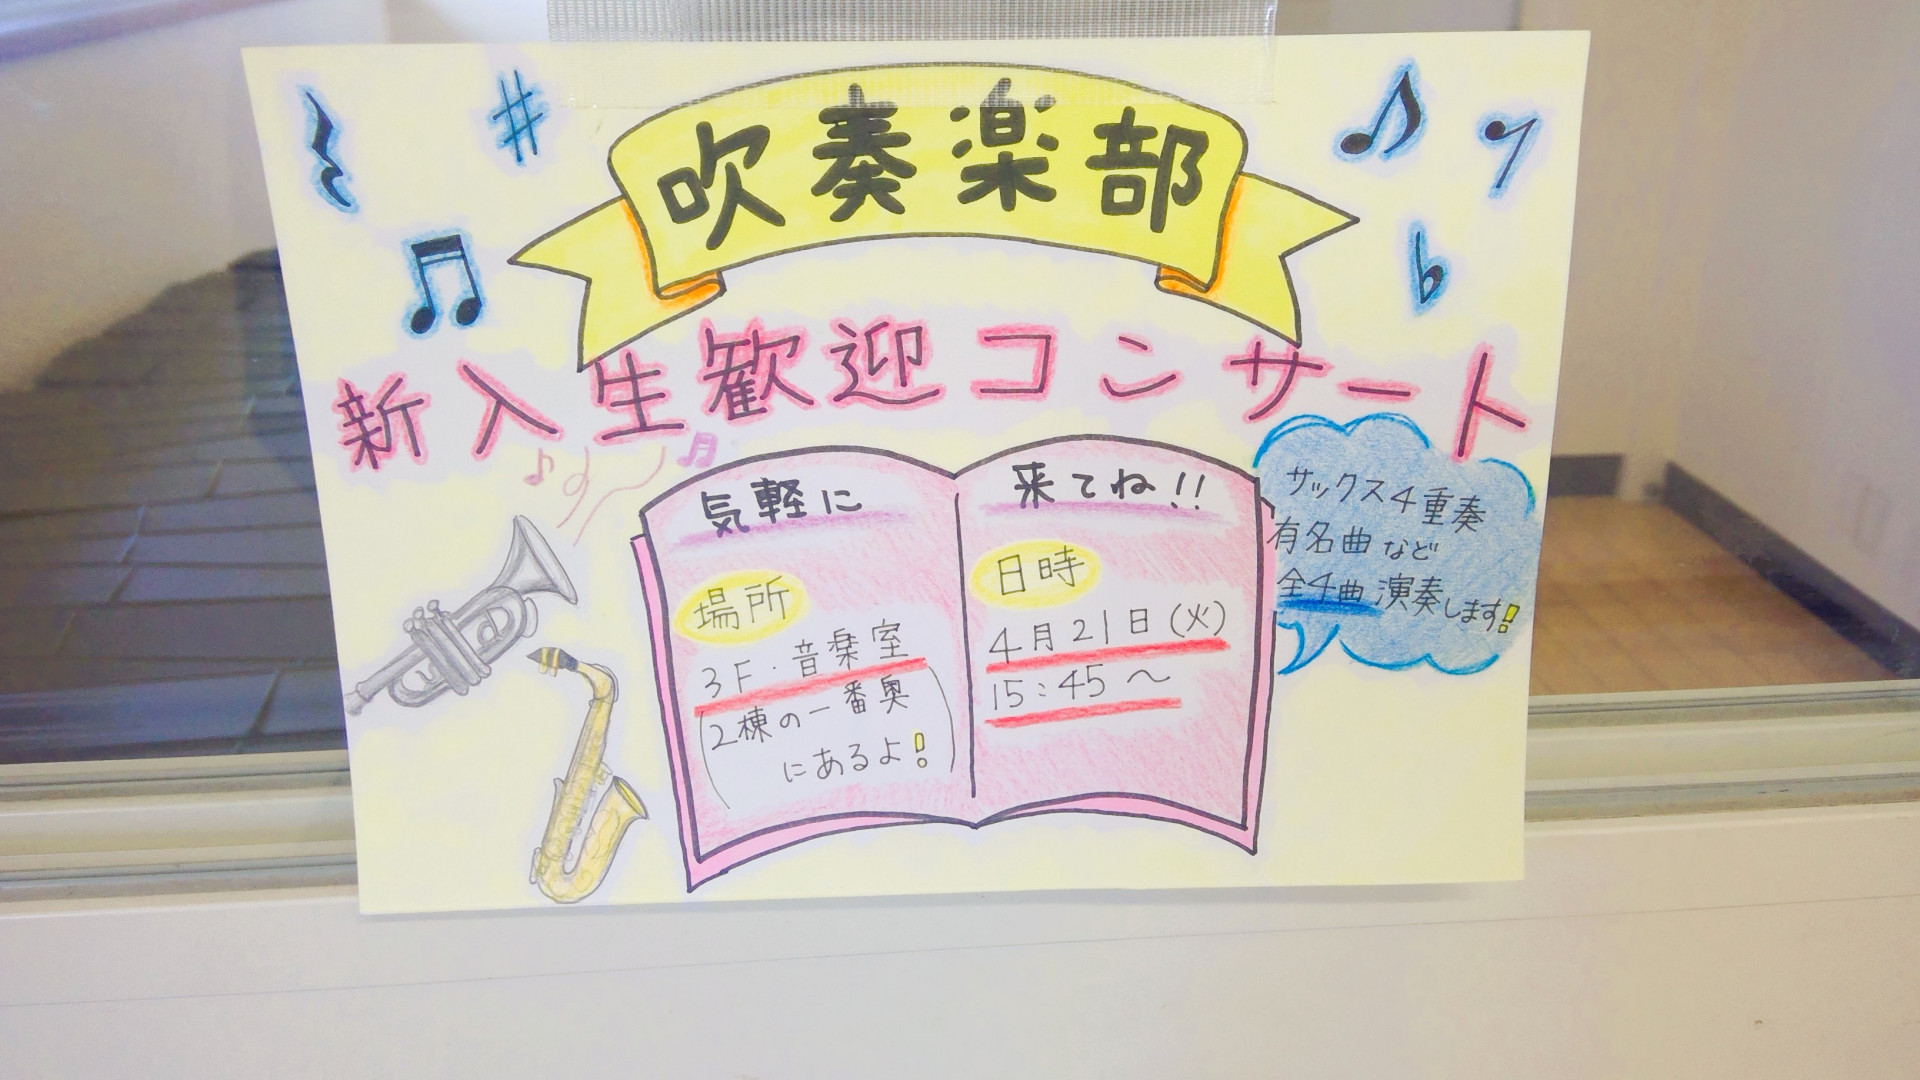 吹奏楽部
新入生歓迎コンサート
気軽に
来てね!!
場所
3F・音楽室
(2棟の一番奥
にあるよ!)
日時
4月21日(火)
15:45~
サックス4重奏
有名曲など
全4曲演奏します!